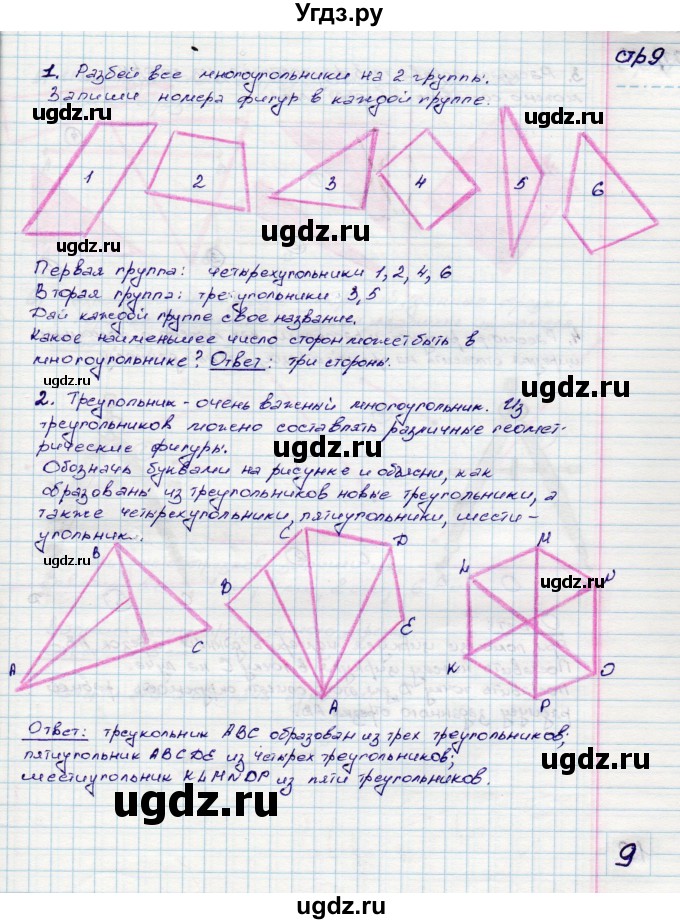 Угдз.ру
стр9
1. Разбей все многоугольники на 2 группы.
Запиши номера фигур в каждой группе:
ugdz.ru ugdz.ru ugdz.ru
1 2 3 4 5 6
ugdz.ru ugdz.ru ugdz.ru
Первая группа: четырехугольники 1, 2, 4, 6
Вторая группа: треугольники 3, 5
Дай каждой группе свое название.
Какое наименьшее число сторон может быть в
многоугольнике? Ответ: три стороны.
ugdz.ru ugdz.ru
2. Треугольник - очень важный многоугольник. Из
треугольников можно составлять различные геомет-
рические фигуры.
ugdz.ru
Обозначь буквами на рисунке и объясни, как
образованы из треугольников новые треугольники, а
также четырехугольники, пятиугольники, шести-
угольники.
ugdz.ru
B C D M
ugdz.ru
B L N
E
C
K O
A A P
ugdz.ru ugdz.ru
Ответ: треукольник ABC образован из трех треугольников;
пятиугольник ABCDE из четырех треугольников;
шестиугольник KLMNOP из пяти треугольников.
ugdz.ru ugdz.ru
9
ugdz.ru